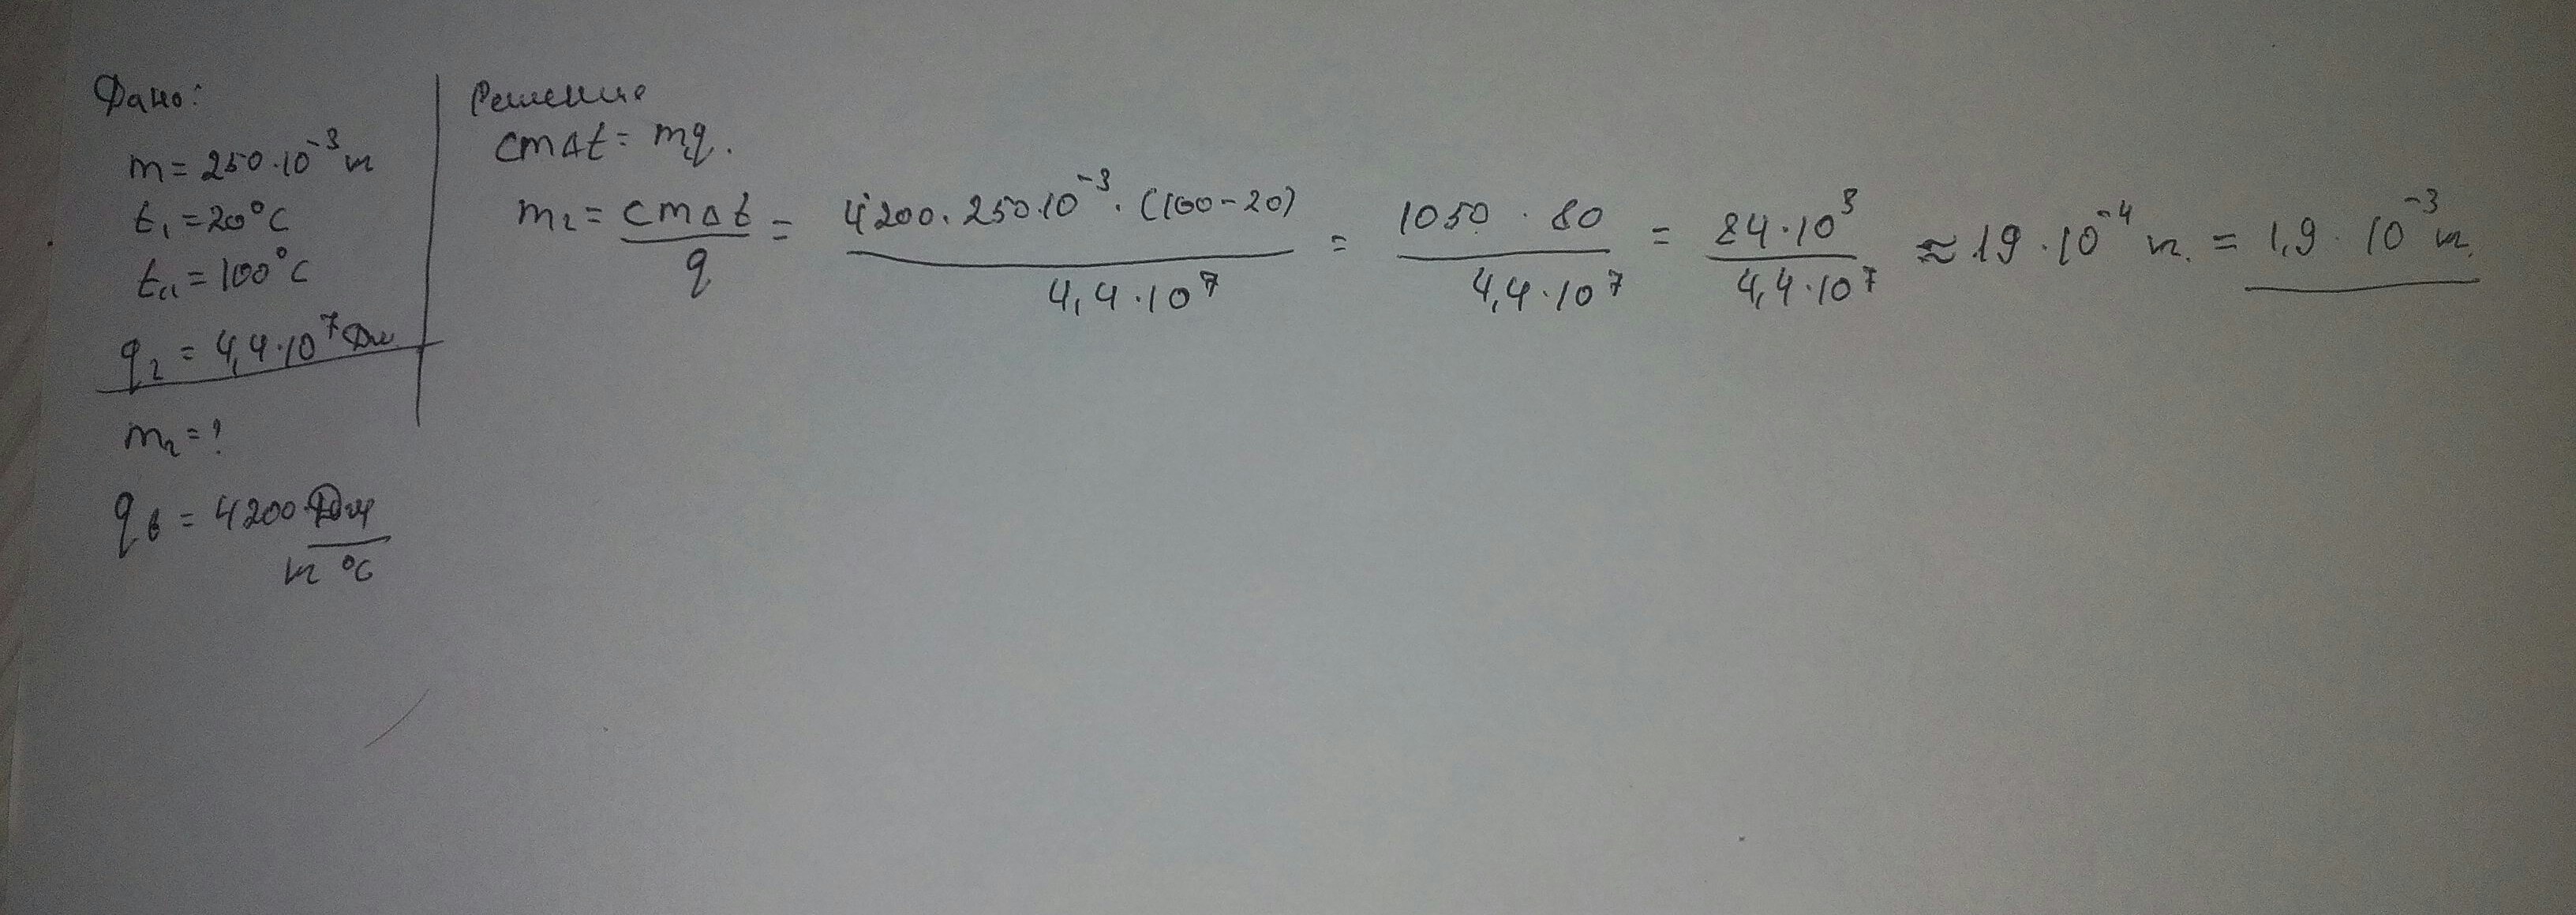 Дано:
m = 250·10⁻³ кг
t₁ = 20°C
tк = 100°C
q₂ = 4,4·10⁷ Дж
m₂ = ?
qв = 4200 Дж
кг °C
Решение
cmΔt = mq.
m₂ = cmΔt / q = 4200·250·10⁻³·(100-20) / 4,4·10⁷ = 1050·80 / 4,4·10⁷ = 84·10³ / 4,4·10⁷ ≈ 19·10⁻⁴ кг. = 1,9·10⁻³ кг.